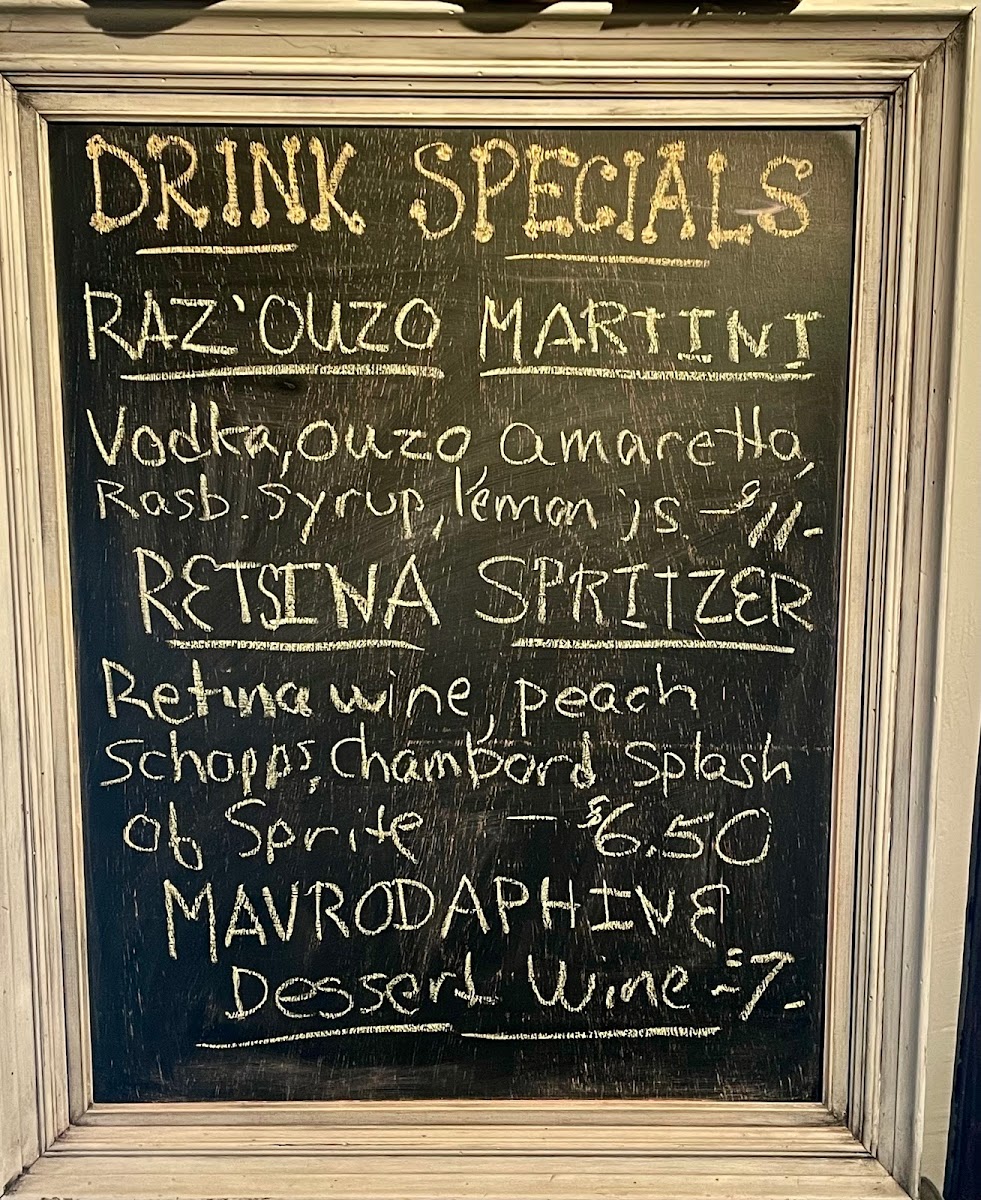 DRINK SPECIALS
RAZ'OUZO MARTINI
Vodka, Ouzo, amaretto,
Rasb. syrup, lemon js. - $11.-
RETSINA SPRITZER
Retina wine, peach
Schopps, Chambord Splash
of Sprite - $6.50
MAVRODAPHINE
Dessert Wine - $7.-